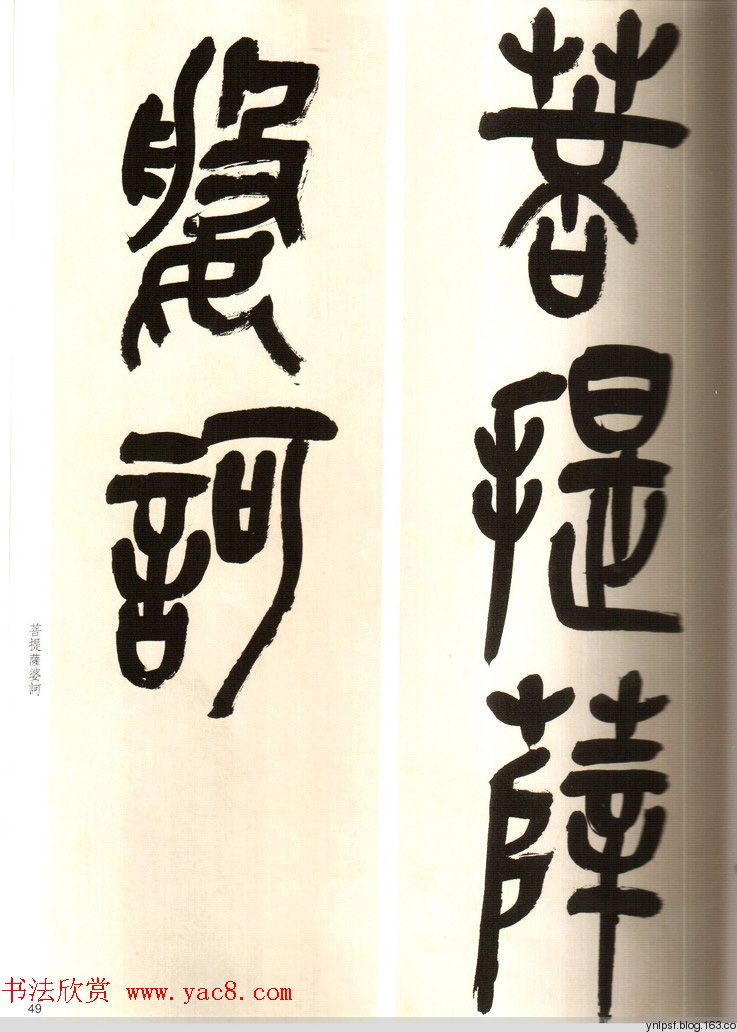 菩提薩
婆訶
菩提薩婆訶
书法欣赏 www.yac8.com
49
ynlpsf.blog.163.co